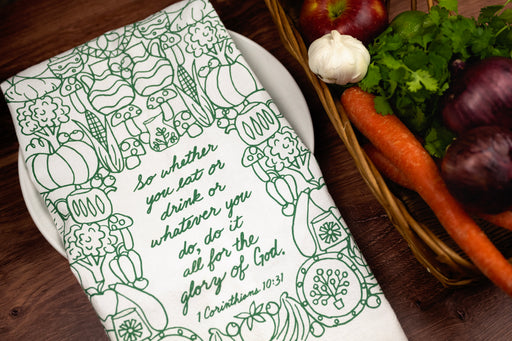 So whether
you eat or
drink or
whatever you
do, do it
all for the
glory of God.
1 Corinthians 10:31